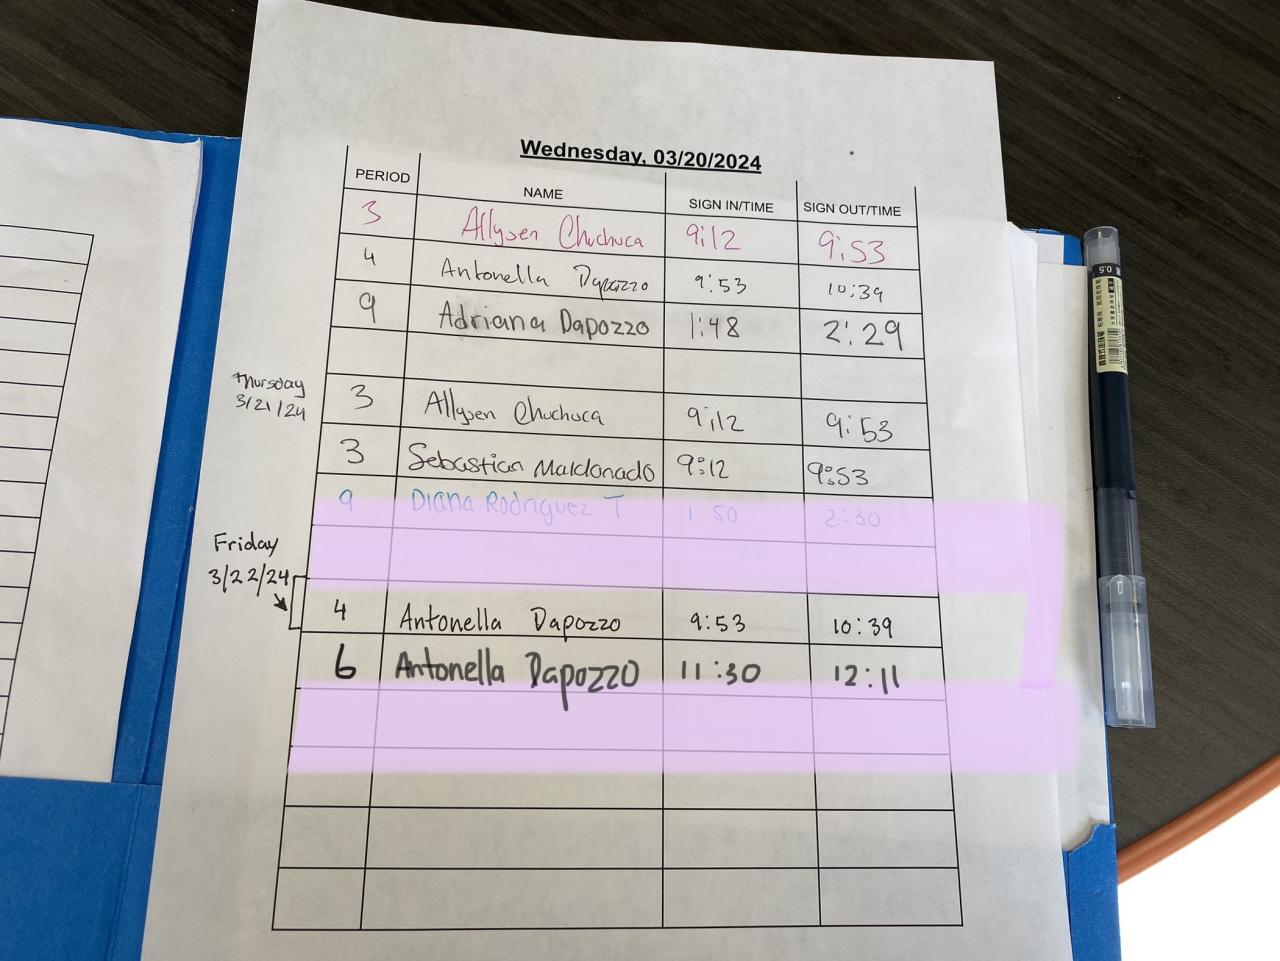 Wednesday, 03/20/2024
PERIOD NAME SIGN IN/TIME SIGN OUT/TIME
3 Allysen Chuchuca 9:12 9:53
4 Antonella Dapozzo 9:53 10:39
9 Adriana Dapozzo 1:48 2:29
Thursday
3/21/24
3 Allysen Chuchuca 9:12 9:53
3 Sebastian Maldonado 9:12 9:53
9 Diana Rodriguez T 1:50 2:30
Friday
3/22/24
4 Antonella Dapozzo 9:53 10:39
6 Antonella Dapozzo 11:30 12:11
0.5